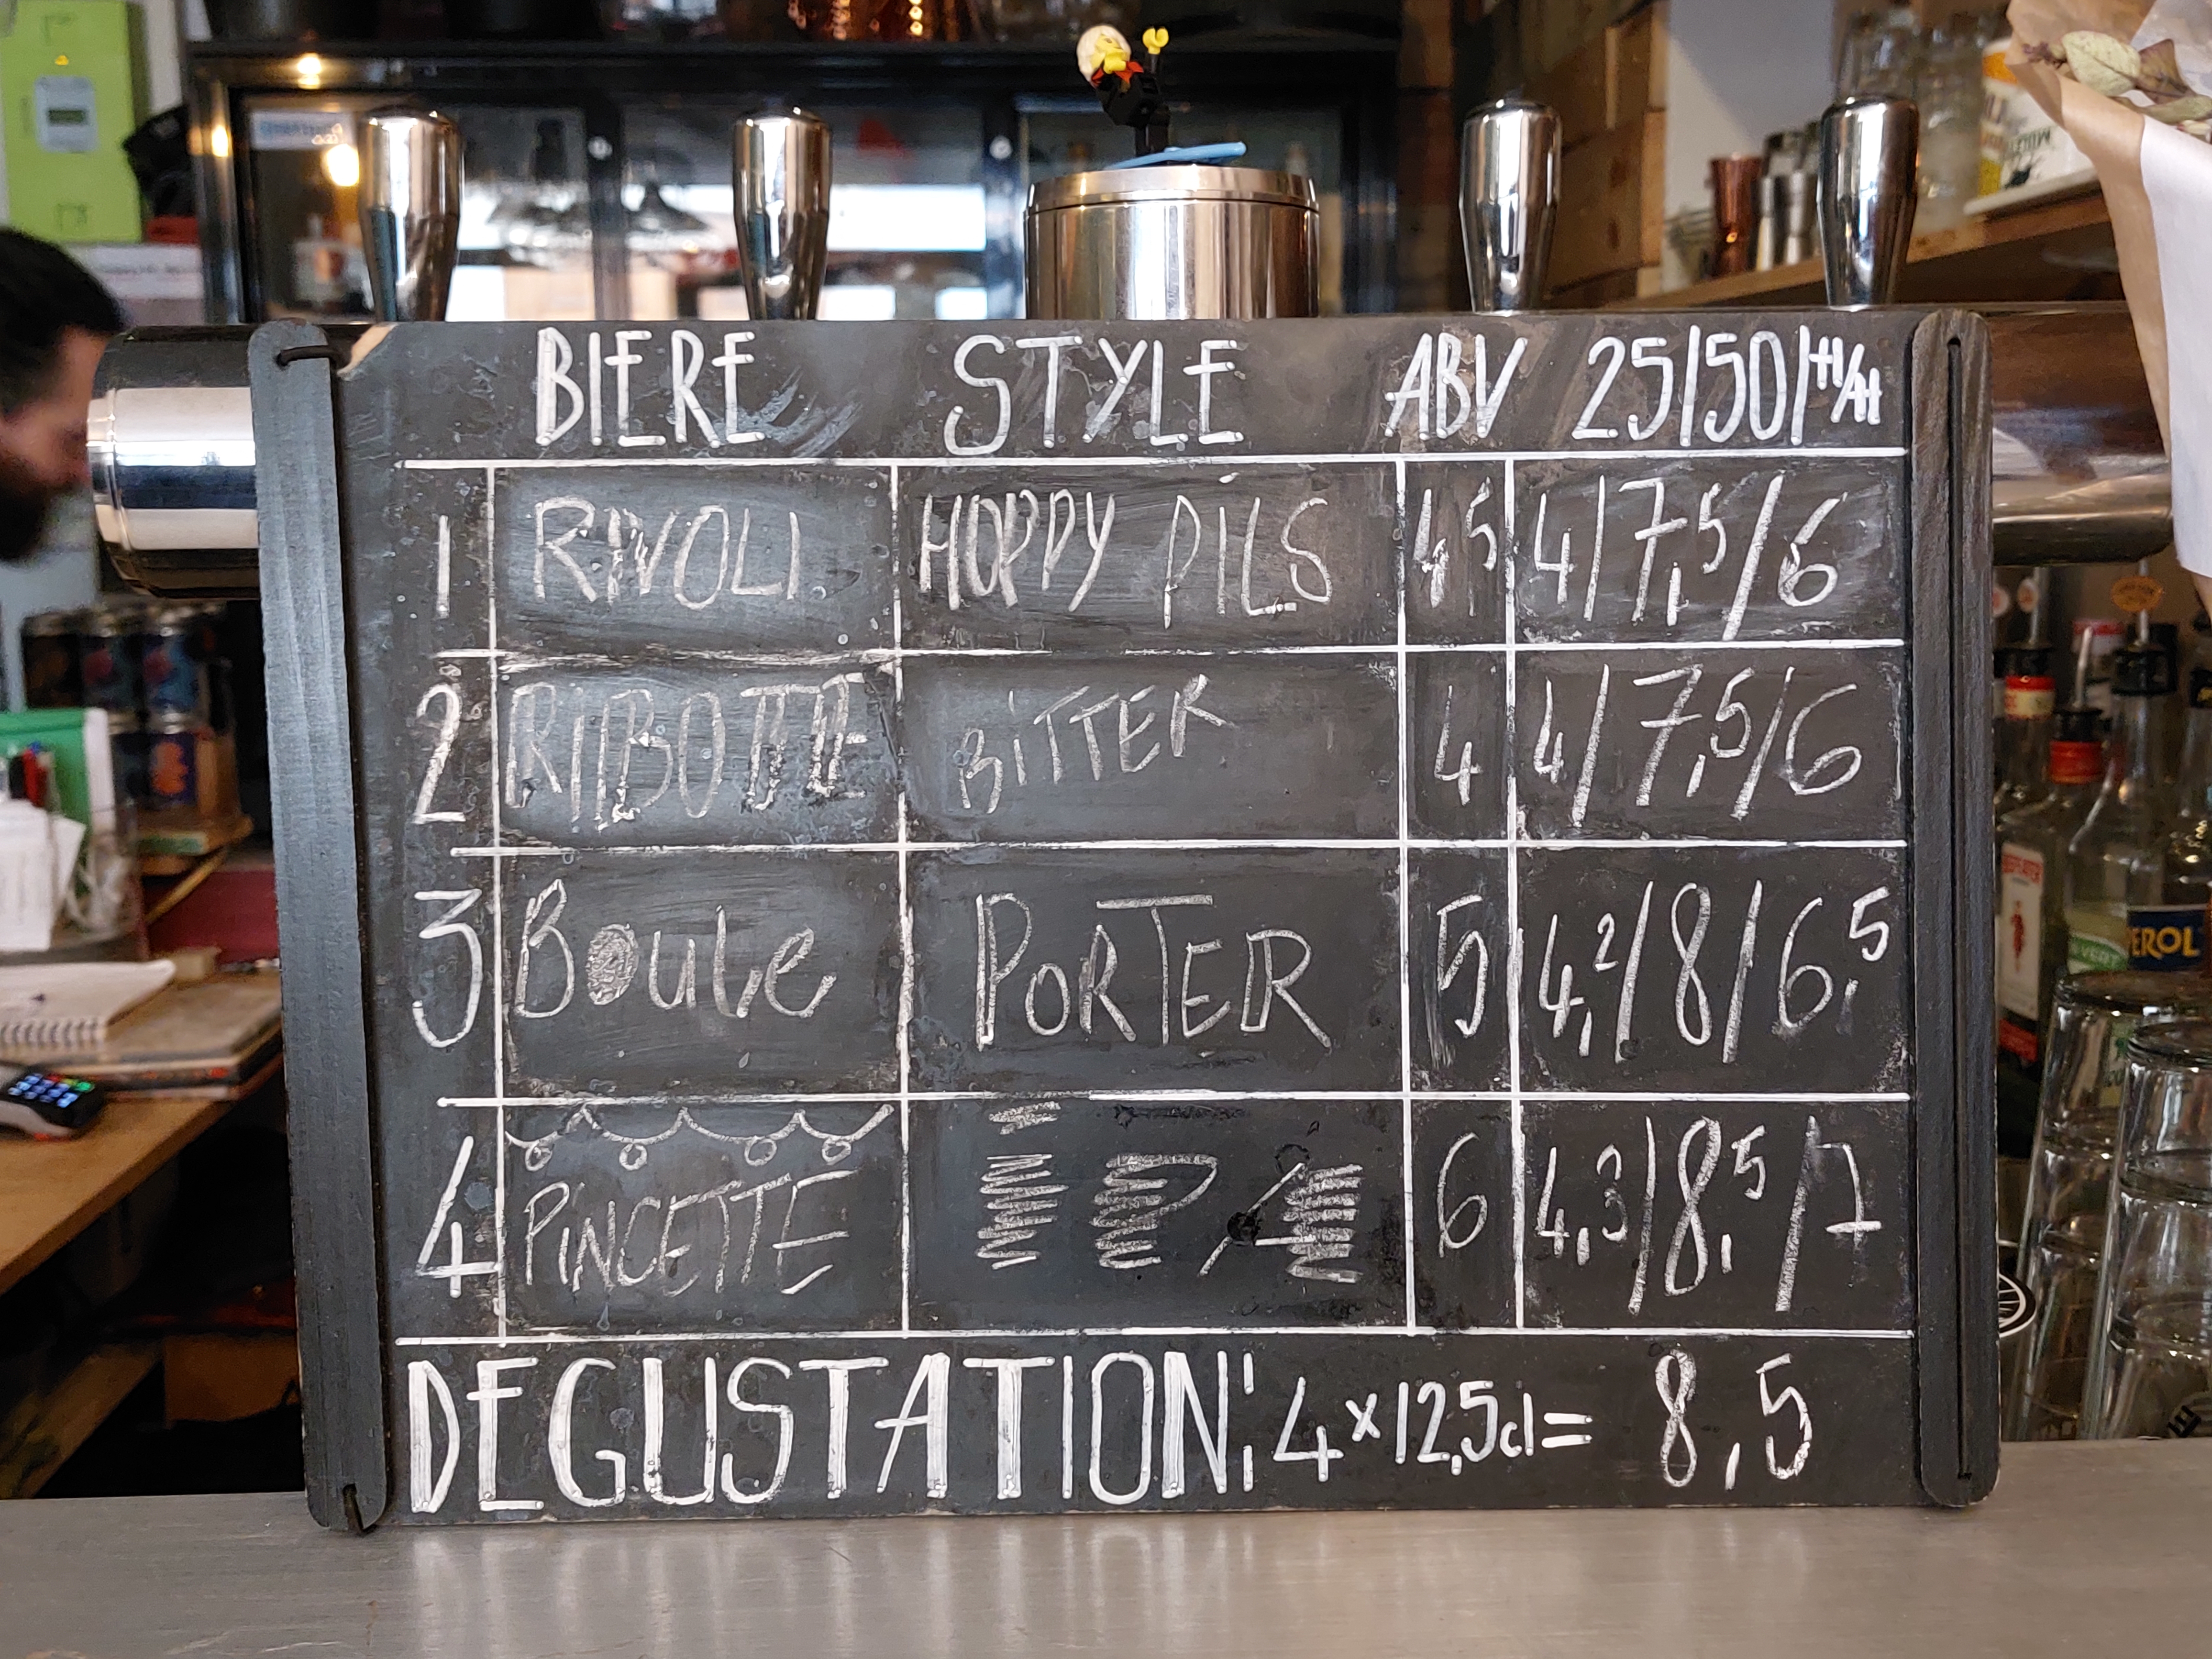 BIERE STYLE ABV 25/50/HH/HH
1 RIVOLI HOPPY PILS 4,5 4/7,5/6
2 RIBOTTE BITTER 4 4/7,5/6
3 Boule PORTER 5 4,2/8/6,5
4 PINCETTE IPA 6 4,3/8,5/7
DEGUSTATION: 4x12,5cl= 8,5
EROL